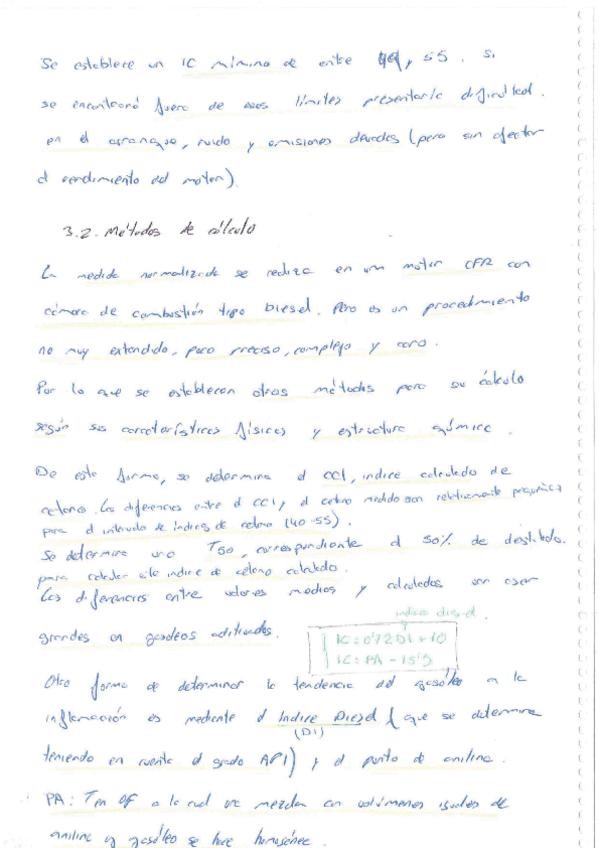 Se establece un IC mínimo de entre 49, 55. Si
se encontrará fuera de esos límites presentaría dificultad
en el arranque, ruido y emisiones elevadas (pero sin afectar
el rendimiento del motor).
3.2. Métodos de cálculo
La medida normalizada se realiza en un motor CFR con
cámara de combustión tipo Diesel. Pero es un procedimiento
no muy extendido, poco preciso, complejo y caro.
Por lo que se establecen otros métodos para su cálculo
según sus características físicas y estructura química.
De esta forma, se determina el CCI, indice calculado de
cetano. Las diferencias entre el CCI y el cetano medido son relativamente pequeñas
para el intervalo de índices de cetano (40-55).
Se determina una T50, correspondiente al 50% de destilado.
para calcular este indice de cetano calculado.
Las diferencias entre valores medios y calculados son
grandes en gasóleos aditivados.
indice diesel.
IC = 0'72DI + 10
IC = PA - 15'5
Otra forma de determinar la tendencia del gasóleo a la
inflamación es mediante el Indice Diesel (que se determina
(DI)
teniendo en cuenta el grado API) y el punto de anilina.
PA: Tm ºF a la cual una mezcla con volúmenes iguales de
anilina y gasóleo se hace homogénea.